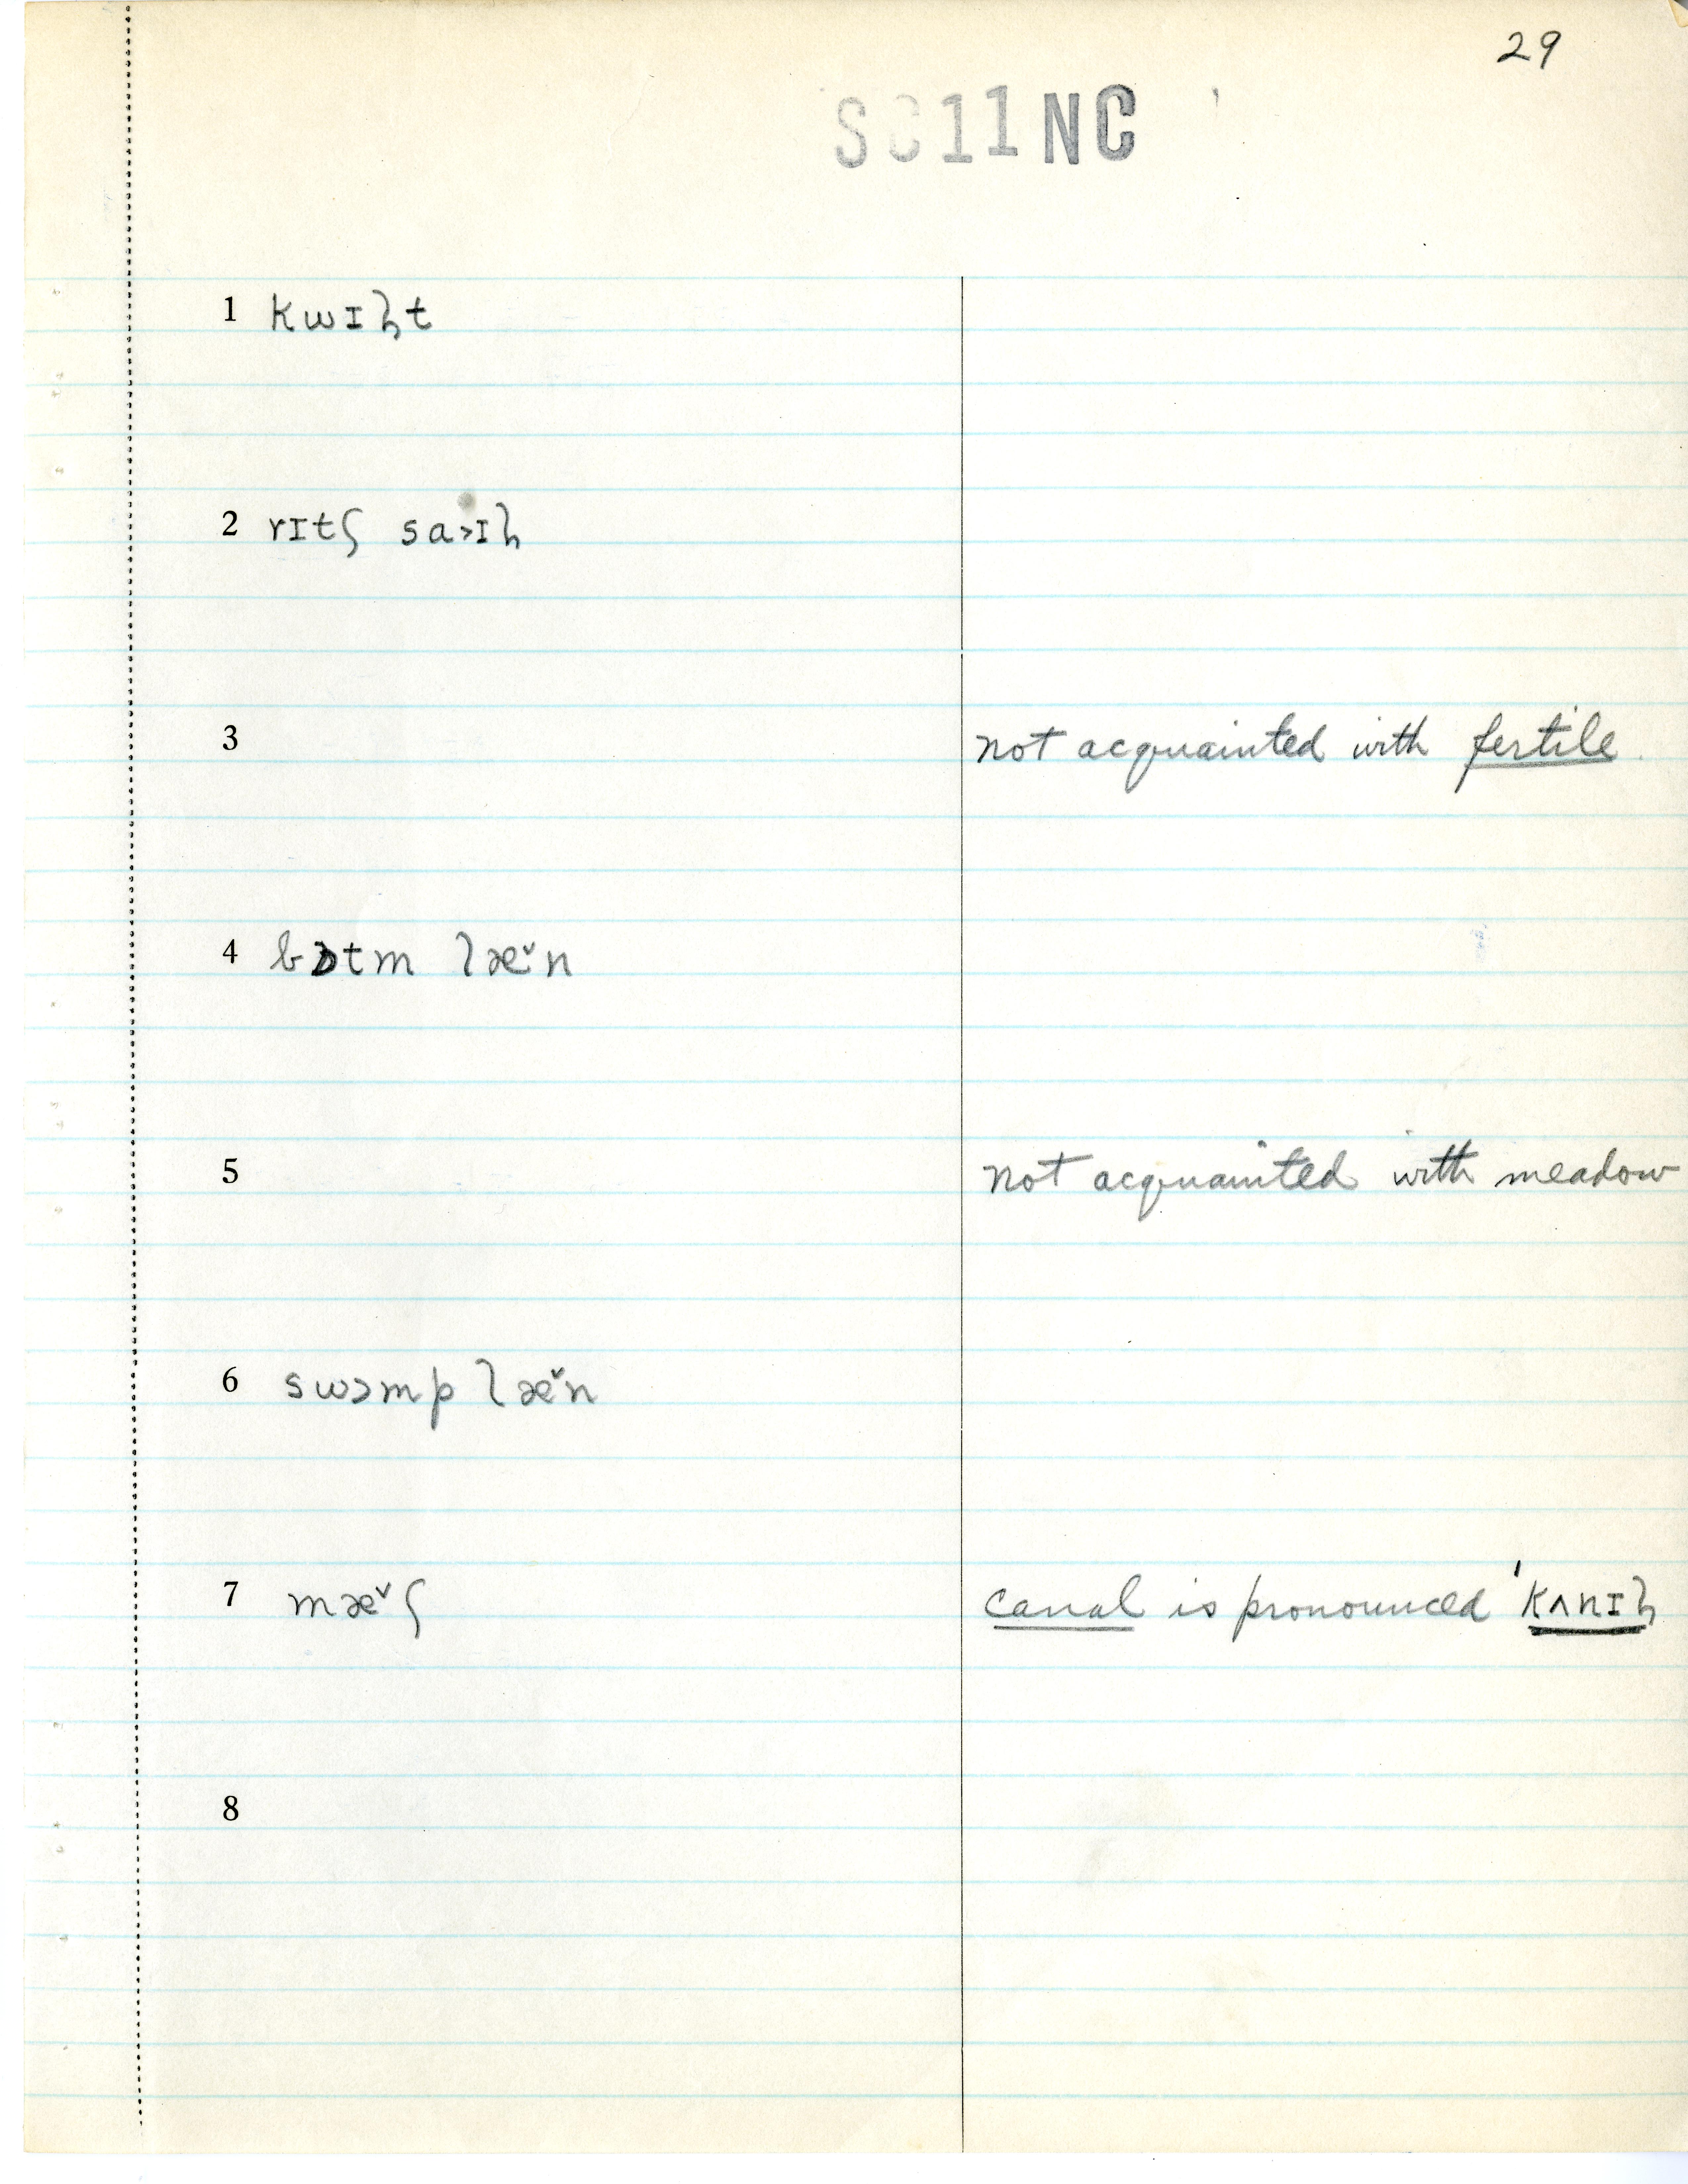 29
SC11NC
1 kwɪɫ̡t
2 rɪtʃ sa˃ɪɫ̡
3 not acquainted with fertile
4 bɔtm læ̌n
5 not acquainted with meadow
6 swɔmp læ̌n
7 mæ̌ʃ canal is pronounced ˈkʌnɪɫ̡
8